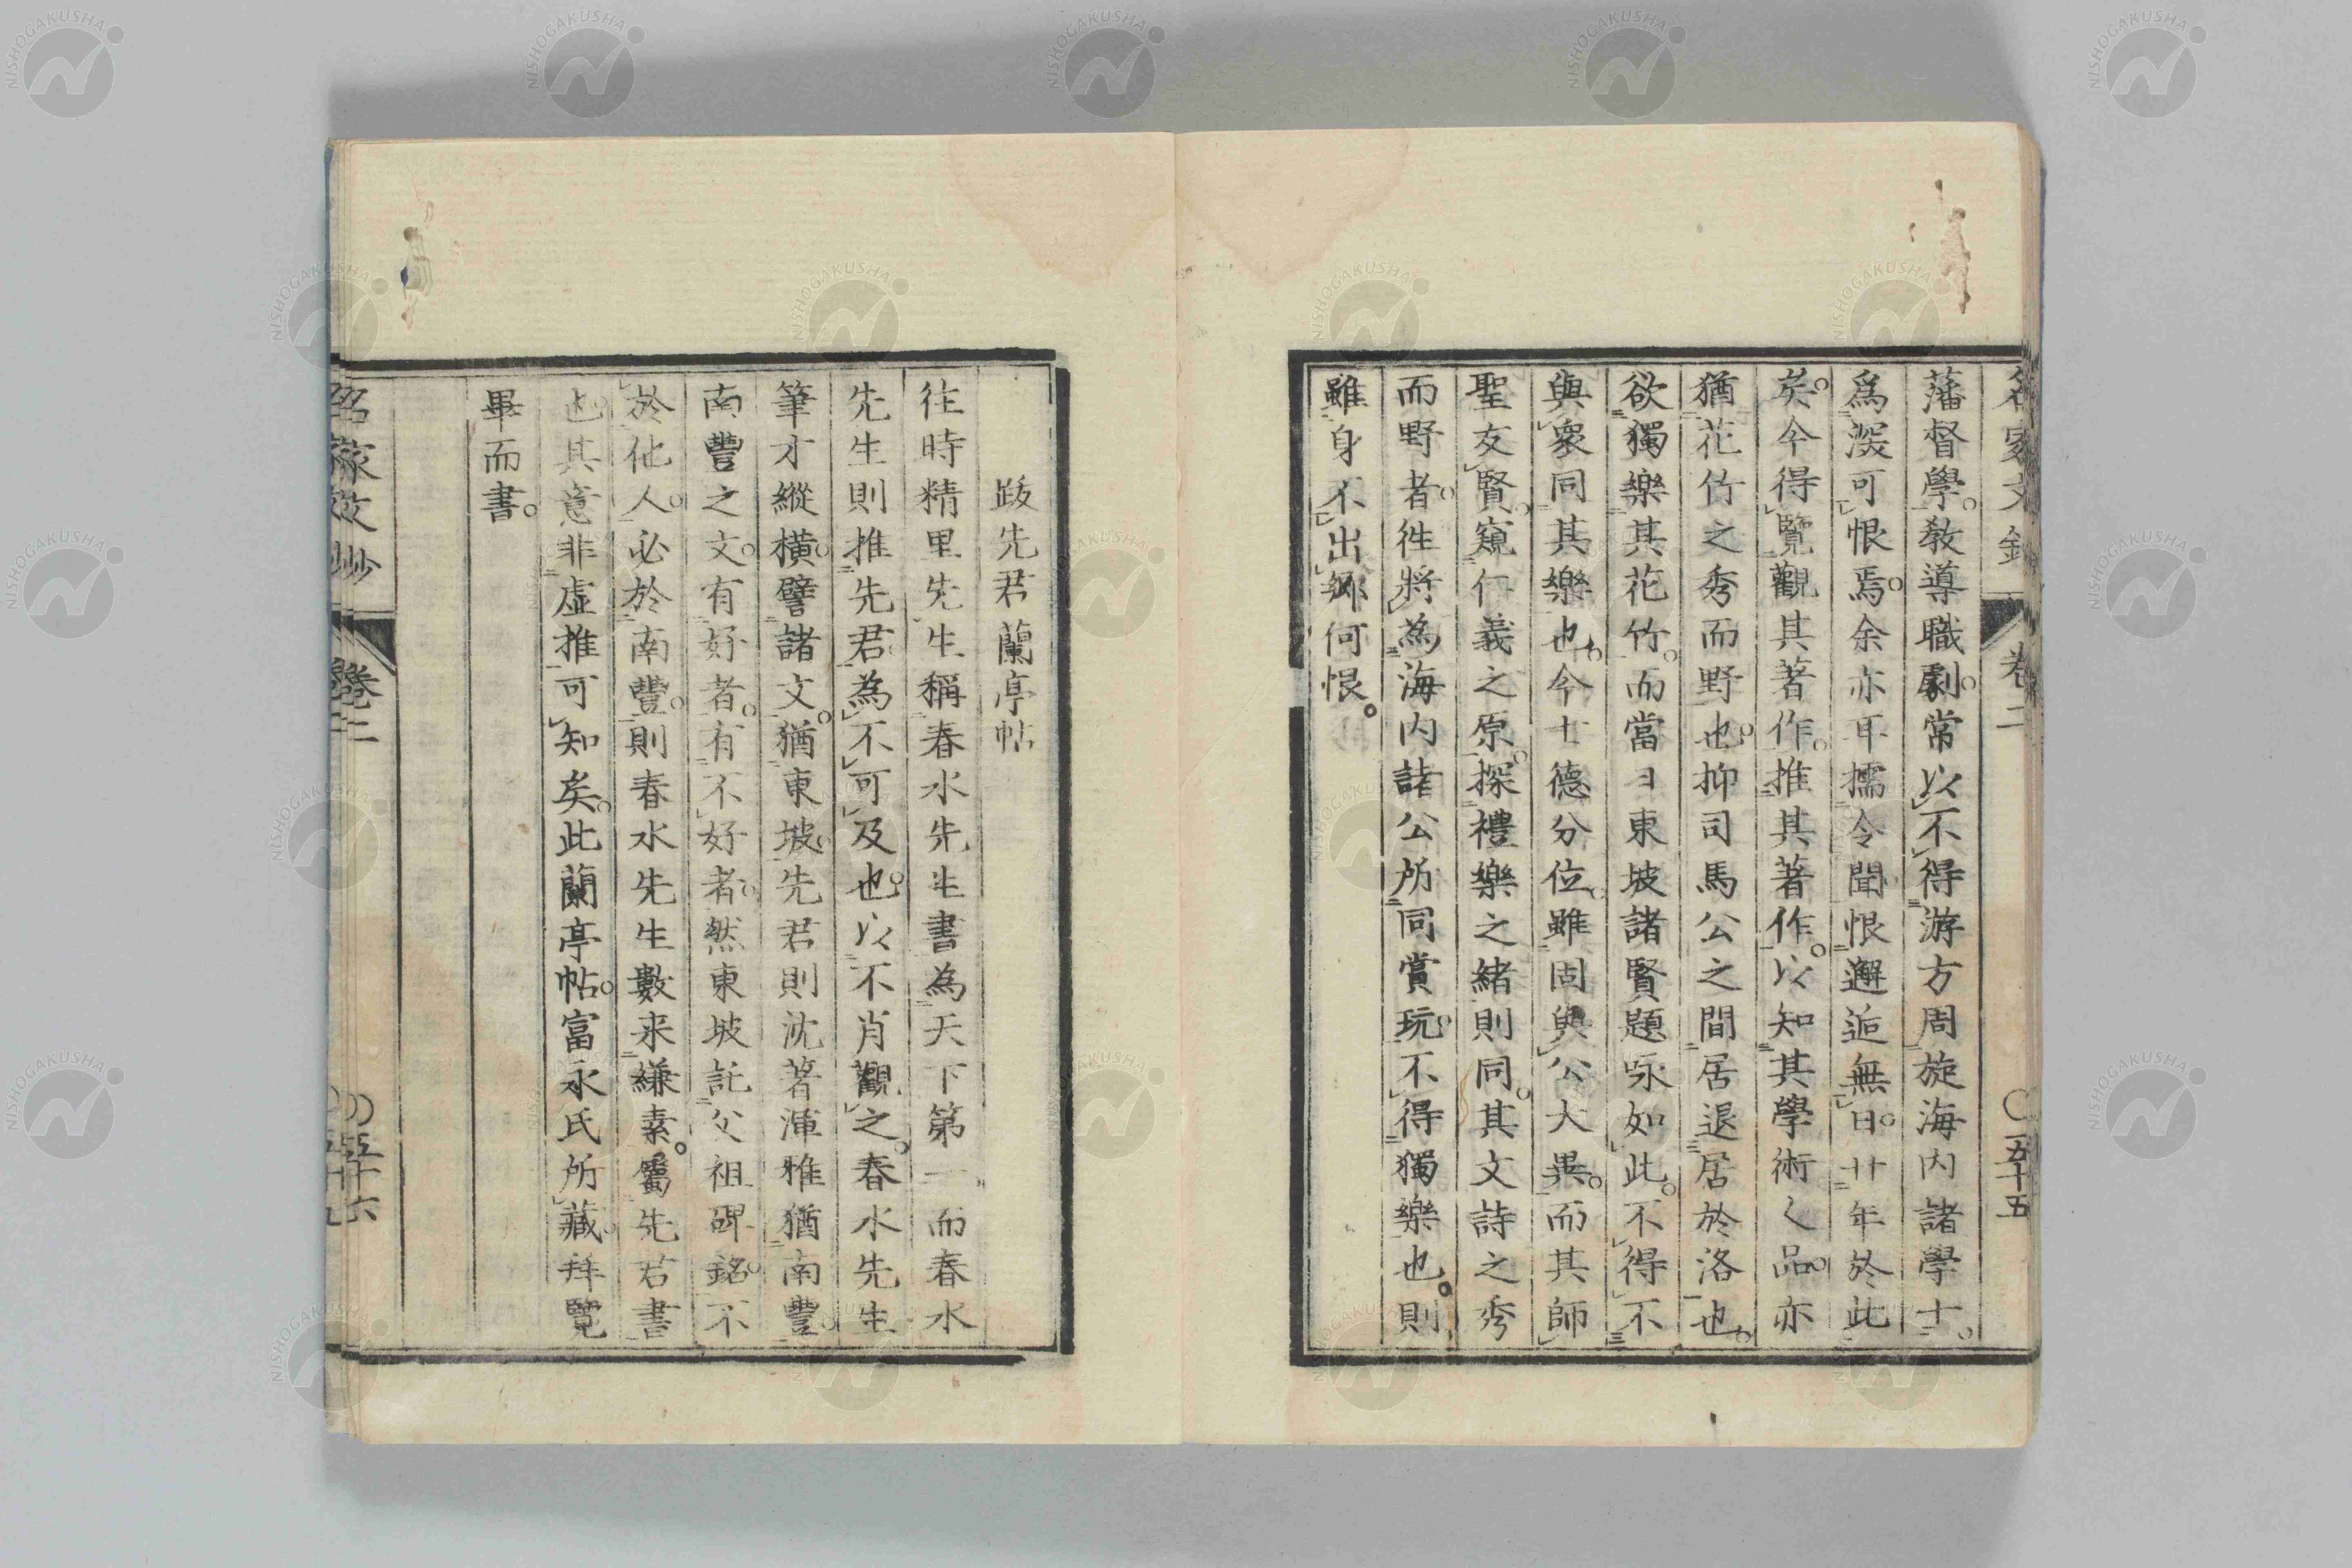 藩督學。教導職劇。常以不得游方周旋海内諸學士。
爲深可恨焉。余亦耳擩令聞。恨邂逅無日。廿年於此
矣。今得覽觀其著作。推其著作。以知其學術之品。亦
猶花竹之秀而野也。抑司馬公之間居退居於洛也。
欲獨樂其花竹。而當日東坡諸賢題咏如此。不得不
與衆同其樂也。今士德分位。雖固與公大異。而其師
聖友賢。窺仁義之原。探禮樂之緒則同。其文詩之秀
而野者。徃將為海内諸公所同賞玩。不得獨樂也。則
雖身不出鄉何恨。
卷二
〇五十五
跋先君蘭亭帖
往時精里先生稱春水先生書為天下第一。而春水
先生則推先君為不可及也。以不肖觀之。春水先生
筆才縱橫。譬諸文。猶東坡。先君則沈著渾雅猶南豐。
南豐之文。有好者。有不好者。然東坡託父祖碑銘。不
於他人。必於南豐。則春水先生數来縑素。屬先君書
也。其意非虛推可知矣。此蘭亭帖。富永氏所藏。拜覽
畢而書。
卷二
〇五十六